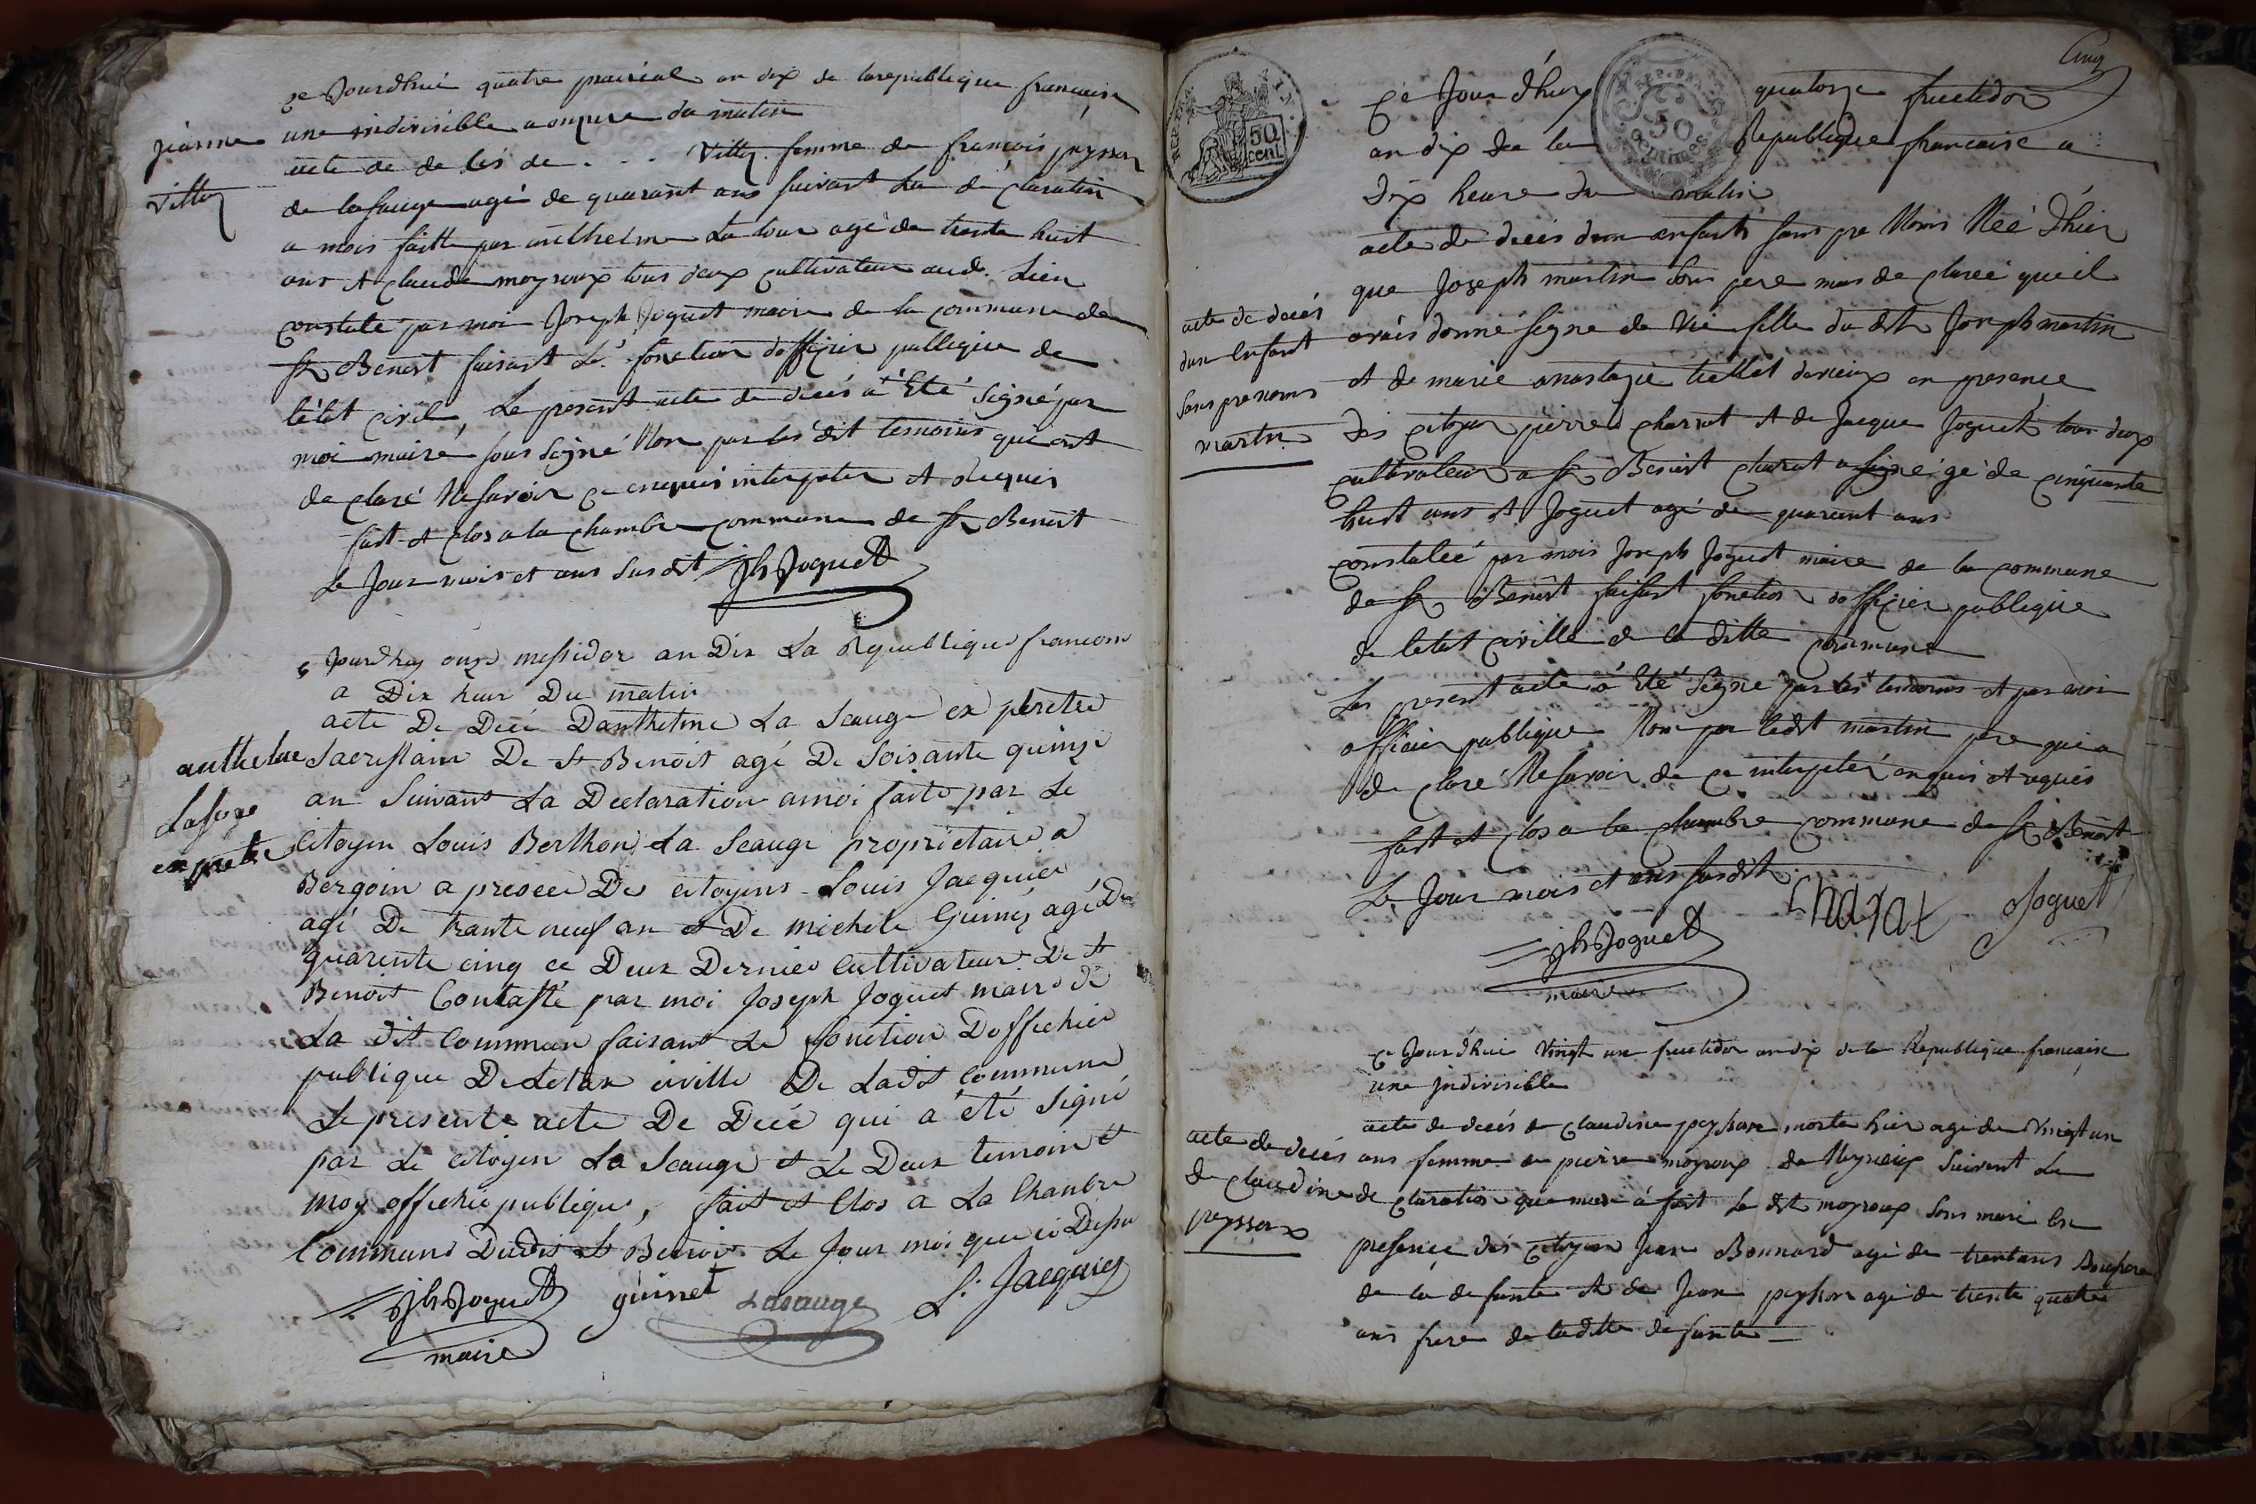 ce Jourdhui quatre prairial an dix de la republique francaise
une indivisible a onze du matin
jeanne
Vittoz
acte de de cés de . . . Vittoz femme de francois peysson
de lasauge agé de quarant ans suivant la de claration
a mois faitte par anthelme La tour agé de trente huit
ans et claude moyroux tous deux cultivateur aud. Lieu
constaté par moi Joseph Joguet maire de la commune de
St Benoit faisant Le fonction dofficier publique de
létat civil, Le present acte de decés a Eté signé par
moi maire sous signé Non par les dit temoins qui ont
de claré Ne savoir ce enquis interpeter et Requis
fait et clos a la chambre commune de St Benoit
Le Jour mois et ans susdit jh Joguet
ce Jourdhuy onze messidor an Dix La Republique francaise
a Dix heur Du matin
acte De Décé Danthelme La Seauge ex pretre
anthelme
Lasauge
ex pretre
Sacristain De St Benoit agé De Soisante quinze
an Suivant La Declaration amoi faite par Le
Citoyen Louis Berthon La Seauge proprietaire a
Bergoin a presece Des citoyens Louis Jacquier
agé De trante neuf an et De michele Guinez agé De
quarente cinq ce Deux Dernier Cultivateur De St
Benoit Contasté par moi Joseph Joguet maire de
La dit Commun faisant Le fonction Dofficher
publique De Letat civille De Ladit commune
Le presente acte De Décé qui a été signé
par Le citoyen La Seauge et Le Deux temoin et
moy officher publique, fait et Clos a La Chanbre
Commune Dudit St Benoit Le Jour moi que ci Desu
jh Joguet guinet Lasauge L. Jacquier
maire
Cinq
REP. FRA.
50
cent
50
Centimes
Ce Jour d'huy quatorze fructidor
an dix de la Republique francaise a
dix heure du matin
acte de decés dun enfant sans pre Noms Née d'hier
que Joseph martin son pere mas de claréé queil
avais donné signe de Vie fille du dit Joseph martin
acte de decés
dun Enfant
sans prenoms
martin
et de marie anastazie trettet davieux en presence
des citoyen pierre charrat et de Jacque Joguet tous deux
cultivateur a St Benoit charat a signé gé de cinquante
huit ans et Joguet agé de quarant ans
constateé par mois Joseph Joguet maire de la commune
de St Benoit faisant fonction dofficier publique
de letat civille de la ditte commune
Les present acte a Eté Signé par les temoins et par moi
officier publique Non par ledit martin pere qui a
de claré Ne savoir de ce interpeté enquis et requis
fait et clos a la chambre commune de St Benoit
Le Jour mois et ans susdit
charat Joguet
jh Joguet
maire
Ce Jour d'hui Vingt un fructidor an dix de la Republique francaise
une indivisible
acte de decés de claudine peysson morte hier agé de Vingt un
acte de decés
de claudine
peysson
ans femme de pierre moyroux de Neyrieux suivent La
de claration que mas a fait Le dit moyroux sons mari En
presence des citoyen Jean Bonnard agé de trentans
de la defunte et de Jean peysson agé de trente quatre
ans frere de ladtte defunte